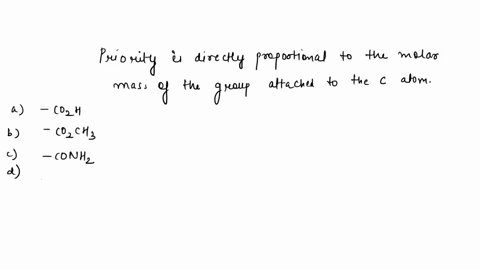 Priority is directly proportional to the molar
mass of the group attached to the C atom.
a) -CO₂H
b) -CO₂CH₃
c) -CONH₂
d)